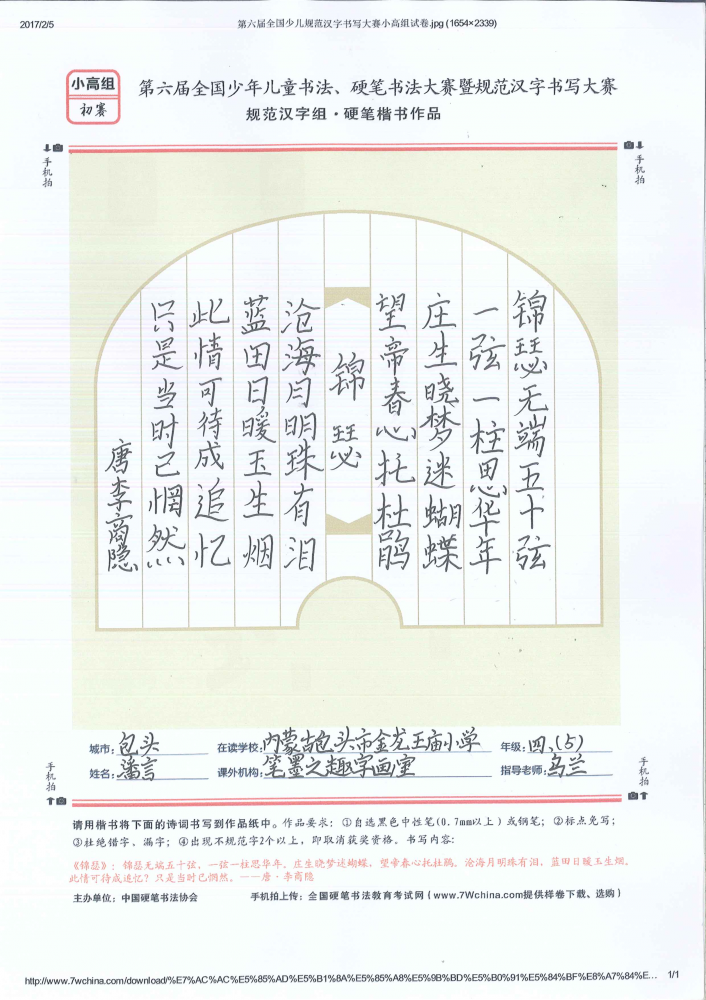 2017/2/5
第六届全国少儿规范汉字书写大赛小高组试卷.jpg (1654×2339)
小高组
初赛
第六届全国少年儿童书法、硬笔书法大赛暨规范汉字书写大赛
规范汉字组·硬笔楷书作品
手机拍
手机拍
锦瑟无端五十弦
一弦一柱思华年
庄生晓梦迷蝴蝶
望帝春心托杜鹃
锦瑟
沧海月明珠有泪
蓝田日暖玉生烟
此情可待成追忆
只是当时已惘然
唐李商隐
城市:包头 在读学校:内蒙古包头市金龙王庙小学 年级:四、(5)
姓名:潘言 课外机构:笔墨之趣字画室 指导老师:乌兰
手机拍
手机拍
请用楷书将下面的诗词书写到作品纸中。作品要求:①自选黑色中性笔(0.7mm以上)或钢笔;②标点免写;
③杜绝错字、漏字;④出现不规范字2个以上,即取消获奖资格。书写内容:
《锦瑟》:锦瑟无端五十弦,一弦一柱思华年。庄生晓梦迷蝴蝶,望帝春心托杜鹃。沧海月明珠有泪,蓝田日暖玉生烟。
此情可待成追忆?只是当时已惘然。——唐·李商隐
主办单位:中国硬笔书法协会 手机拍上传:全国硬笔书法教育考试网(www.7Wchina.com提供样卷下载、选购)
http://www.7wchina.com/download/%E7%AC%AC%E5%85%AD%E5%B1%8A%E5%85%A8%E5%9B%BD%E5%B0%91%E5%84%BF%E8%A7%84%E... 1/1